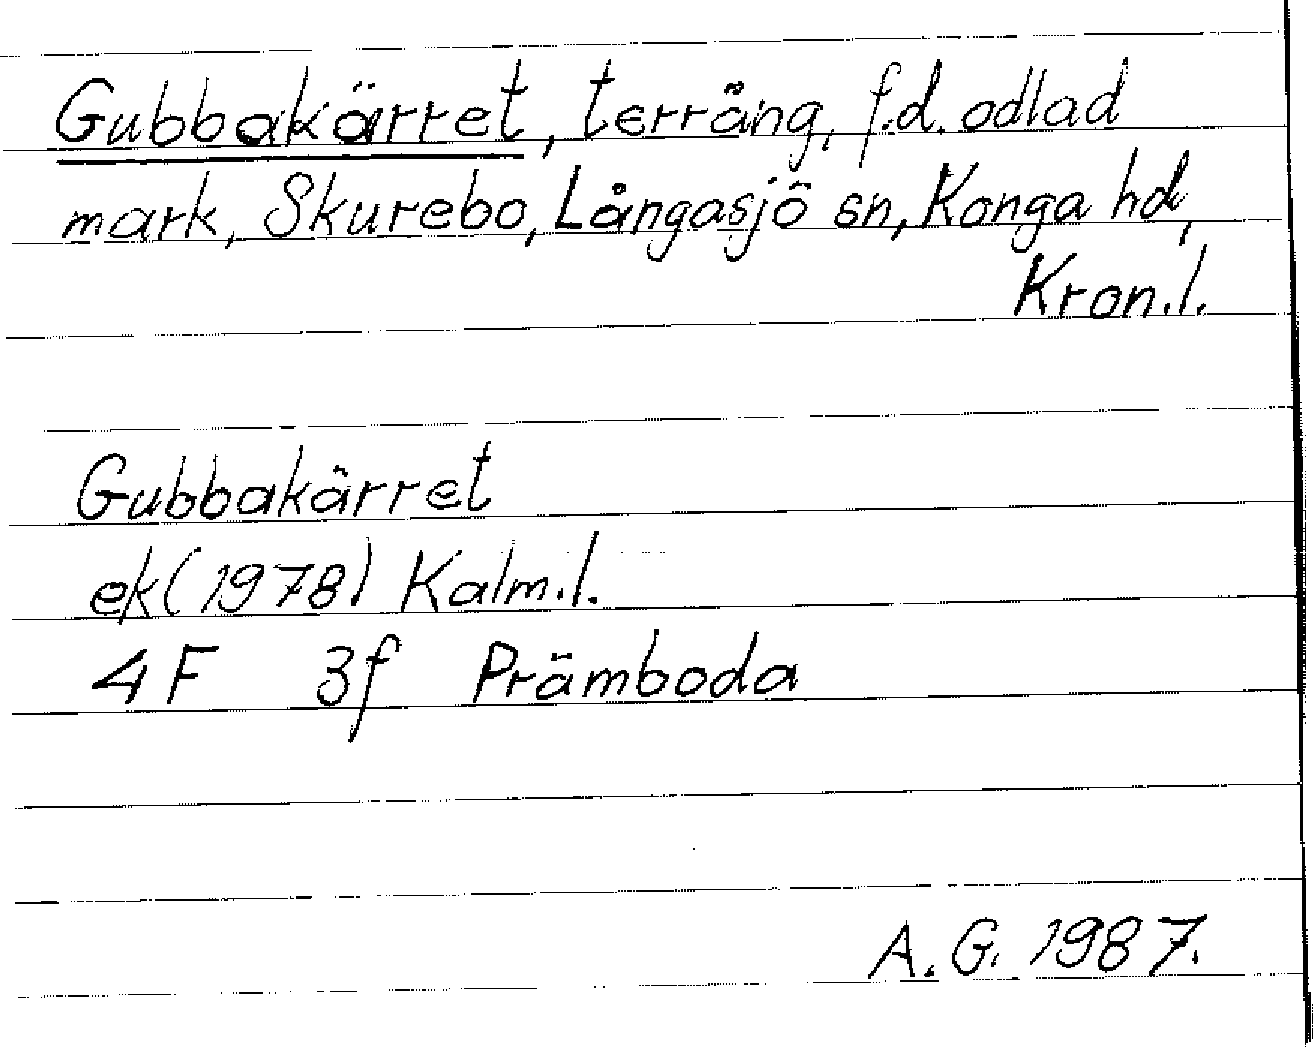 Gubbakärret, terräng, f.d. odlad
mark, Skurebo, Långasjö sn, Konga hd,
Kron.l.
Gubbakärret
ek (1978) Kalm.l.
4F 3f Prämboda
A.G. 1987.